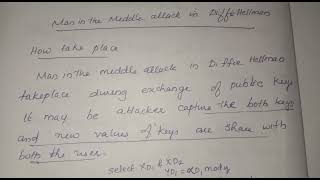 Man in the Middle attack in Diffie Hellman
How take place
Man in the middle attack in Diffie Hellman
takeplace during exchange of public keys
It may be attacker capture the both keys
and new values of keys are share with
both the user.
select XD1 & XD2
YD1 = αD1 mod q